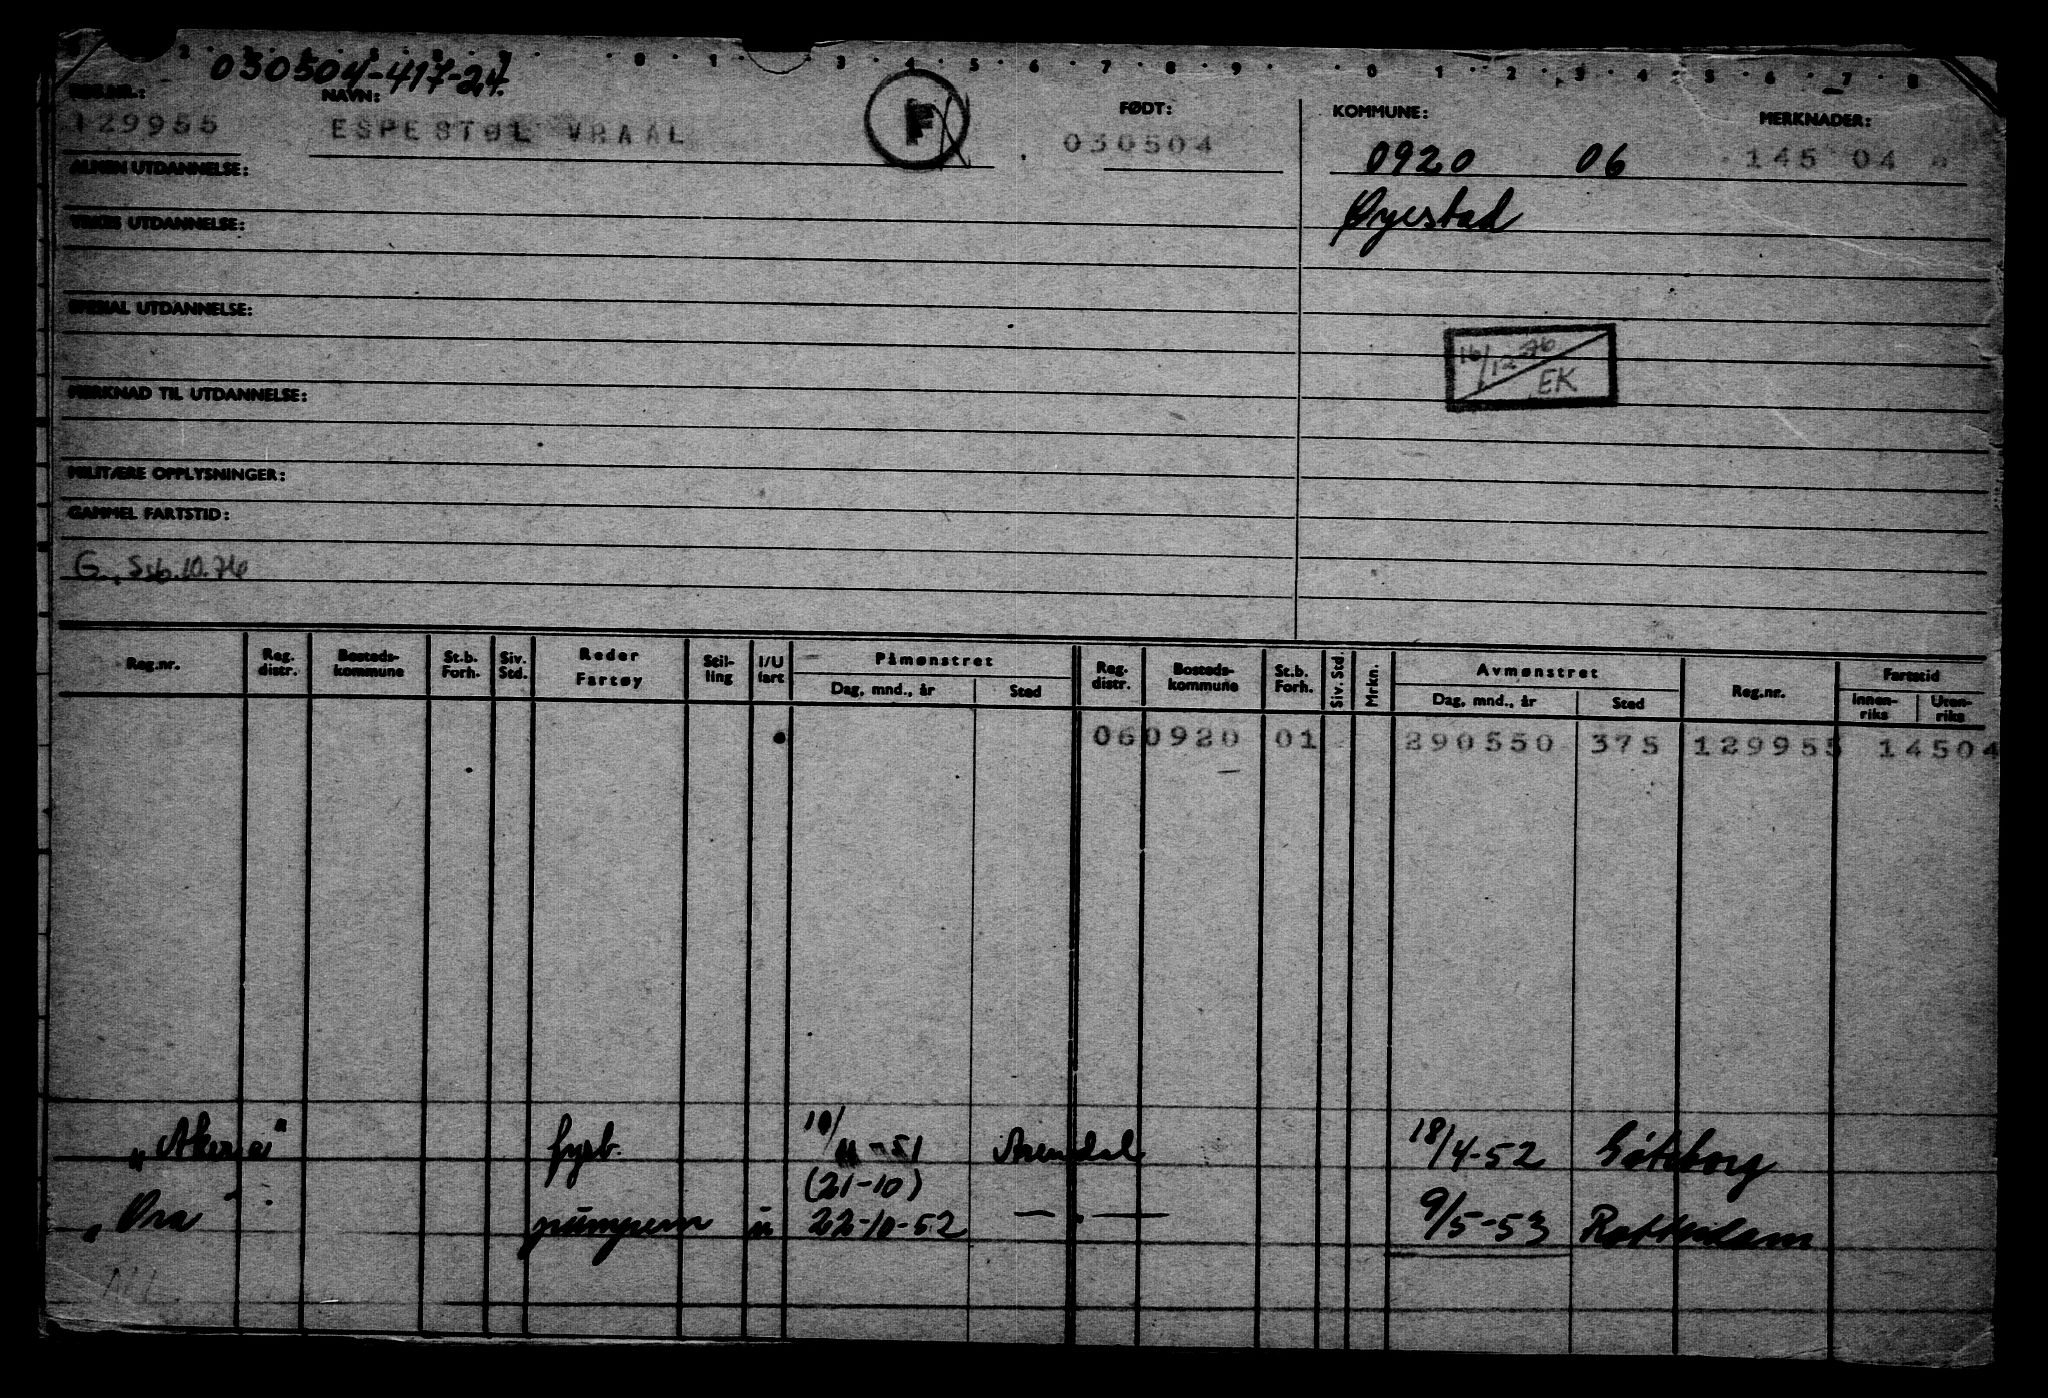 030504-417-27.
REG.NR.: NAVN: FØDT: KOMMUNE: MERKNADER:
129955 ESPESTØL VRAAL F 030504 0920 06 145 04
ALMEN UTDANNELSE: Øyestad
YRKES UTDANNELSE:
SPESIAL UTDANNELSE:
16/12 76 EK
MERKNAD TIL UTDANNELSE:
MILITÆRE OPPLYSNINGER:
GAMMEL FARTSTID:
G. Ssb.10.76
Reg.nr. Reg. distr. Bosteds-kommune St.b. Forh. Siv. Std. Reder Fartøy Stil-ling I/U fart Påmønstret Dag, mnd., år Sted Reg. distr. Bosteds-kommune St.b. Forh. Siv. Std. Mrkn. Avmønstret Dag, mnd., år Sted Reg.nr. Fartstid Innen-riks Uten-riks
060920 01 290550 375 129955 14504
fyrb. 10/11-51 Arendal 18/4-52 Göteborg
(21-10)
"Ora" pumpem u 22-10-52 —"— 9/5-53 Rotterdam